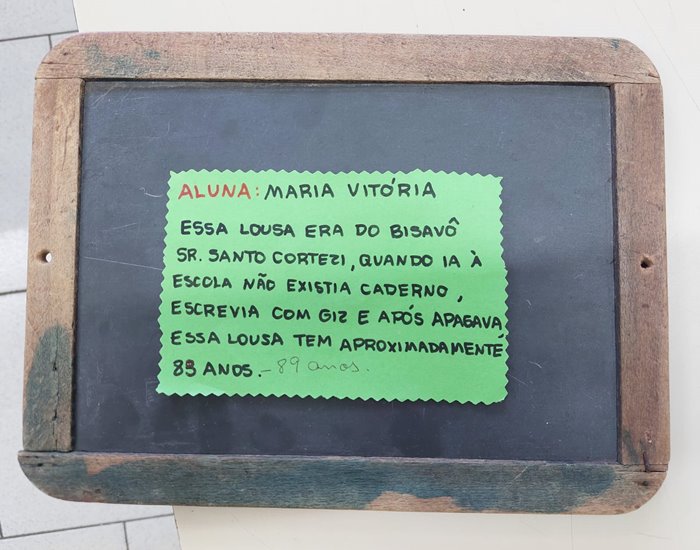 ALUNA: MARIA VITÓRIA
ESSA LOUSA ERA DO BISAVÔ
SR. SANTO CORTEZI, QUANDO IA À
ESCOLA NÃO EXISTIA CADERNO,
ESCREVIA COM GIZ E APÓS APAGAVA
ESSA LOUSA TEM APROXIMADAMENTE
89 ANOS. - 89 anos.